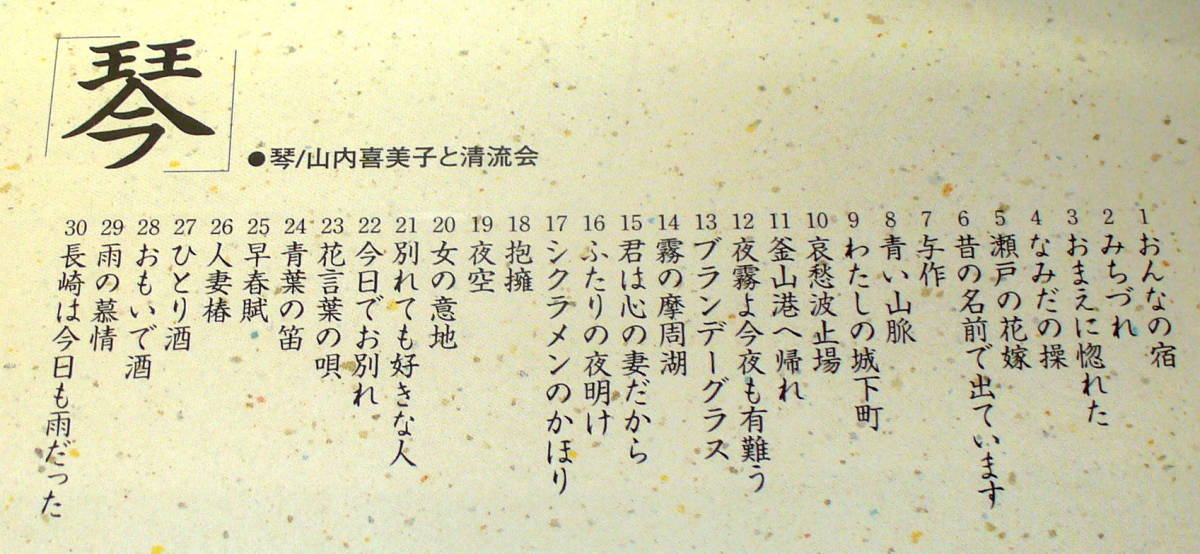 琴
●琴/山内喜美子と清流会
1 おんなの宿
2 みちづれ
3 おまえに惚れた
4 なみだの操
5 瀬戸の花嫁
6 昔の名前で出ています
7 与作
8 青い山脈
9 わたしの城下町
10 哀愁波止場
11 釜山港へ帰れ
12 夜霧よ今夜も有難う
13 ブランデーグラス
14 霧の摩周湖
15 君は心の妻だから
16 ふたりの夜明け
17 シクラメンのかほり
18 抱擁
19 夜空
20 女の意地
21 別れても好きな人
22 今日でお別れ
23 花言葉の唄
24 青葉の笛
25 早春賦
26 人妻椿
27 ひとり酒
28 おもいで酒
29 雨の慕情
30 長崎は今日も雨だった